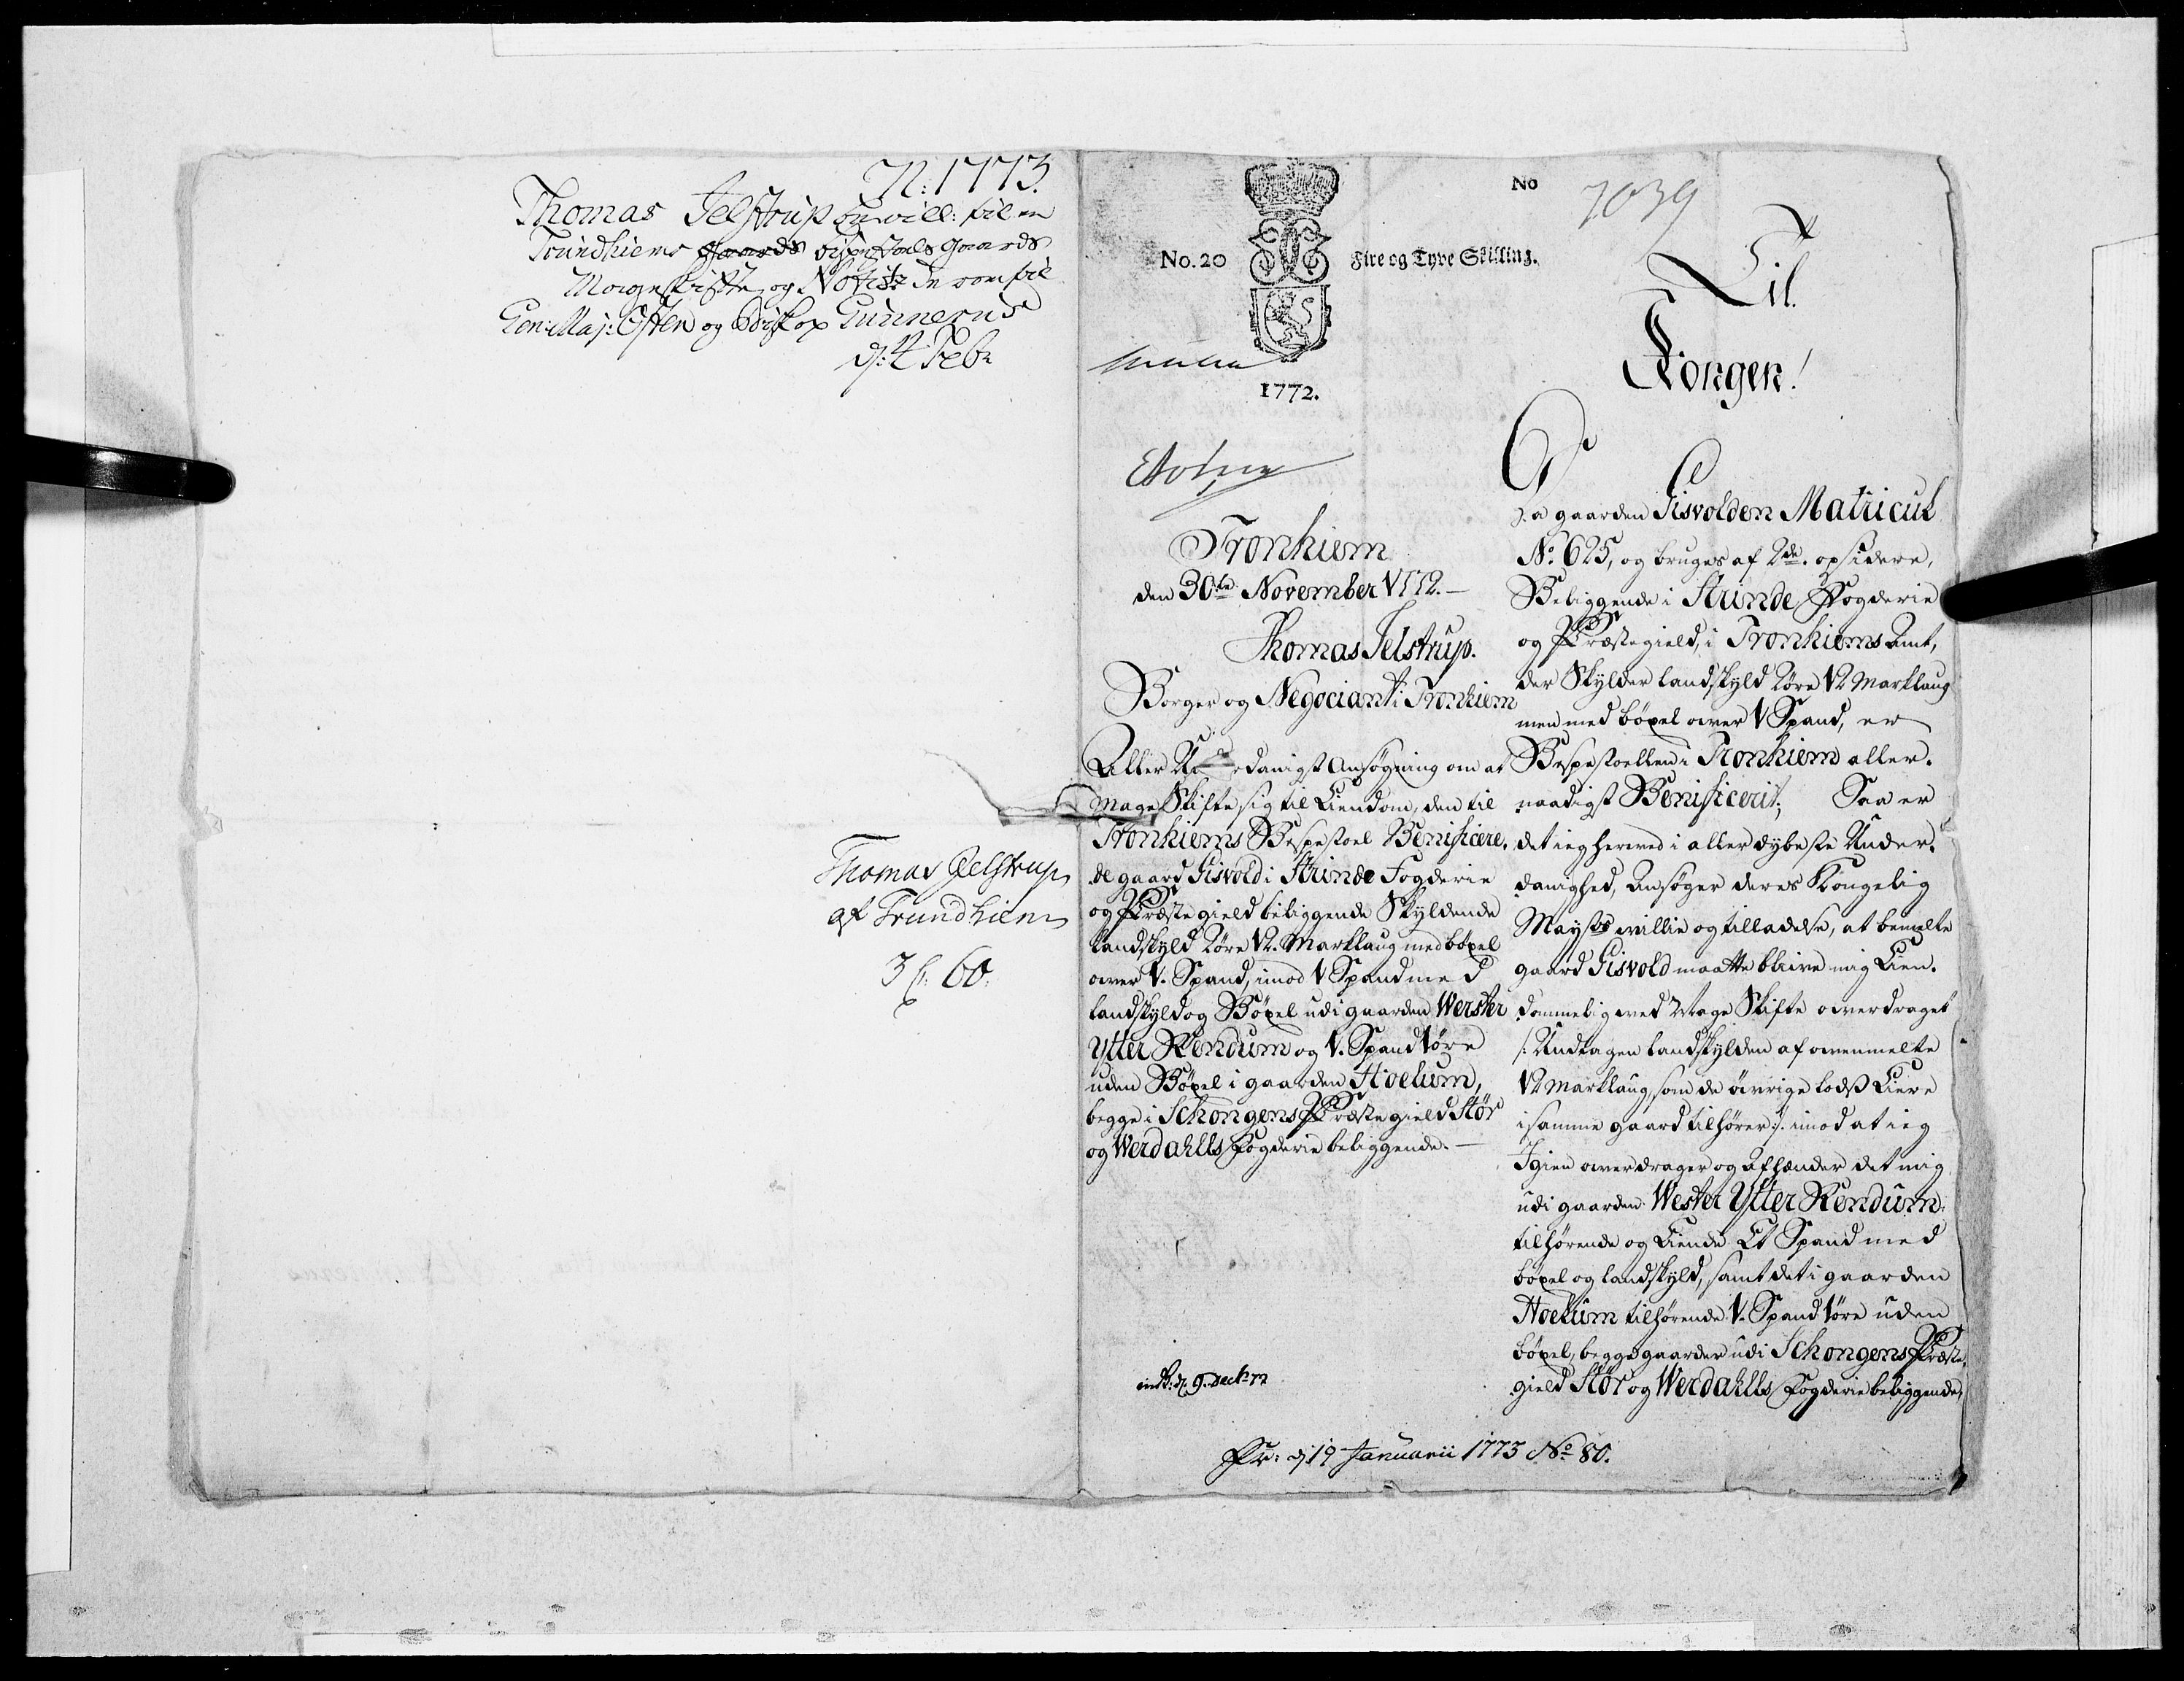 N: 1773.
Thomas Jelstrup bevill: til en
Trundhiems bispestols gaards
Mageskifte, og Notitz der om til
Gen: Maj: Osten og Biskop Gunnerus
d: 4 Febr
Thomas Jelstrup
af Trundhiem
3 60.
No. 20
Fire og Tyve Skilling.
1772.
No
1039
Til
Kongen!
Tronhiem
den 30te November 1772.
Thomas Jelstrup.
Borger og Negociant i Tronhiem
Aller Underdanigst Ansøgning om at
Mage Skifte sig til Eiendom, den til
Tronhiems Bispestoel Benificere,
de gaard Gisvold i Strinde Fogderie
og Præstegield beliggende Skyldende
Landskyld 2øre 12. Marklaug med böxel
over 1. Spand, imod 1 Spand med
Landskyld og Böxel udi gaarden Werster
Ytter Rendum og 1. Spand 1øre
uden Böxel i gaarden Hoelum,
begge i Schongens Præstegield Stör
og Werdahlls Fogderie beliggende.
indk: d. 9. Decbr 72
Da gaarden Gisvolden Matricul
No. 625, og bruges af 2de. opsidere,
Beliggende i Strinde Fogderie
og Præstegield, i Tronhiems Amt,
der Skylder Landskyld 2øre 12 Marklaug
men med böxel over 1 Spand, er
Bispestoellen i Tronhiem aller-
naadigst Benificerit; Saa er
det ieg herved i allerdybeste Under-
danighed, Ansøger deres Kongelig
Maysts villie og tilladelse, at bemelte
gaard Gisvold maatte blive mig Eien-
dommelig ved Mage Skifte overdraget
/: Undtagen Landskylden af ovenmelte
12 Marklaug, som de øvrige Lods Eiere
i samme gaard tilhører :/ imod at ieg
Igien overdrager og afhænder det mig
udi gaarden Wester Ytter Rendum
tilhørende og Eiende Et Spand med
böxel og Landskyld, samt det i gaarden
Hoelum tilhørende 1. Spand 1øre uden
böxel, begge gaarder udi Schongens Præste-
gield Stör og Werdahlls Fogderie beliggende,
Pr: d 19 Januarii 1773 No 80.